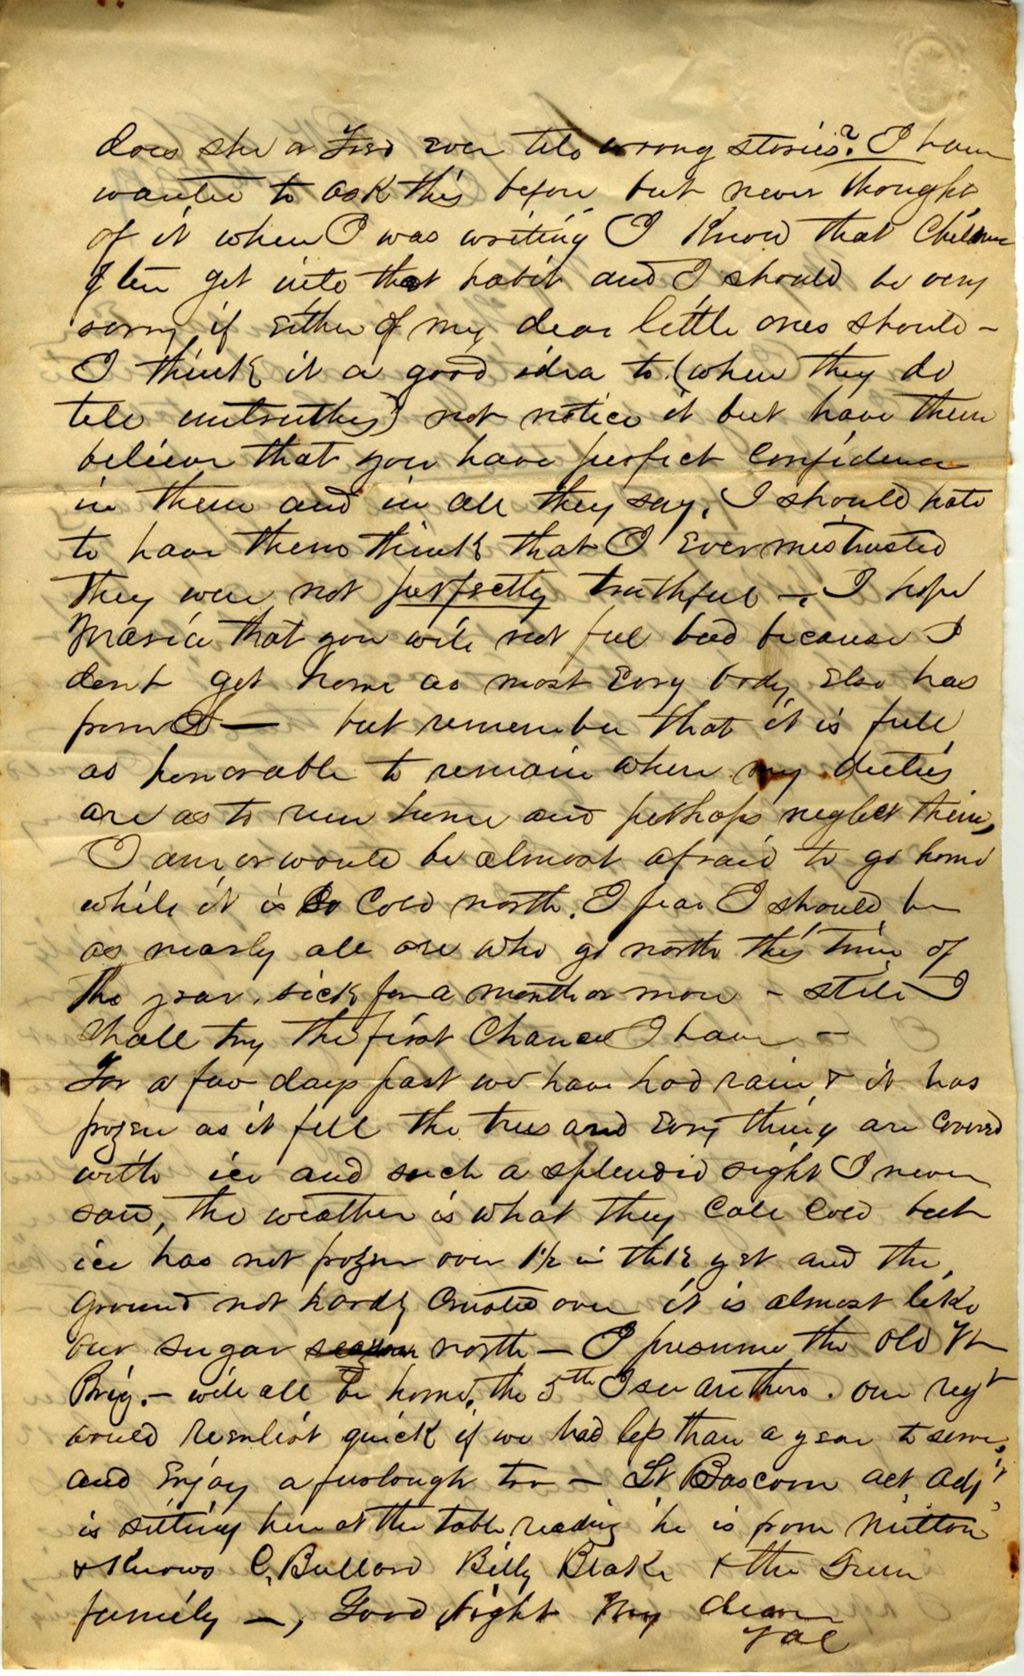 does she or Fred ever tell wrong stories? I have
wanted to ask this before but never thought
of it when I was writing I Know that Children
often get into that habit and I should be very
sorry if either of my dear little ones should –
I think it a good idea to (when they do
tell untruths) not notice it but have them
believe that you have perfect Confidence
in them and in all they say. I should hate
to have them think that I Ever mistrusted
they were not perfectly truthful –. I hope
that you will not feel bad because I
dont get home as most Every body Else has
from – but remember that it is full
as honorable to remain where my duties
are as to run home and perhaps neglect them,
I am or would be almost afraid to go home
while it is so Cold north. I fear I should be
as nearly all are who go north this time of
the year, sick for a month or more – still I
Shall try the first Chance I have –
For a few days past we have had rain & it has
frozen as it fell the trees and Every thing are Covered
with ice and such a splendid sight I never
saw, the weather is what they Call Cold but
ice has not frozen over 1½ in thick yet and the
Ground not hardly Crusted over it is almost like
our sugar season north – I presume the old Vt
Brig. – will all be home, the 5th I see are there. our regt
would reenlist quick if we had less than a year to serve,
and Enjoy a furlough too – Lt Bascom act. adjt,
is sitting here at the table reading he is from Milton
& Knows C, Bullard Billy Blake & the
family –, Good Night My dear
Val